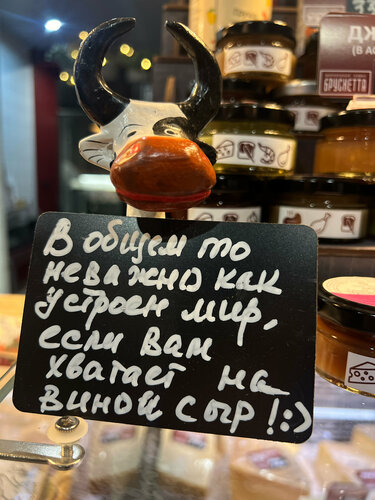 ДЖ
(В АС
БРУСКЕТТА
В общем то
неважно как
устроен мир,
если вам
хватает на
вино и сыр!:)